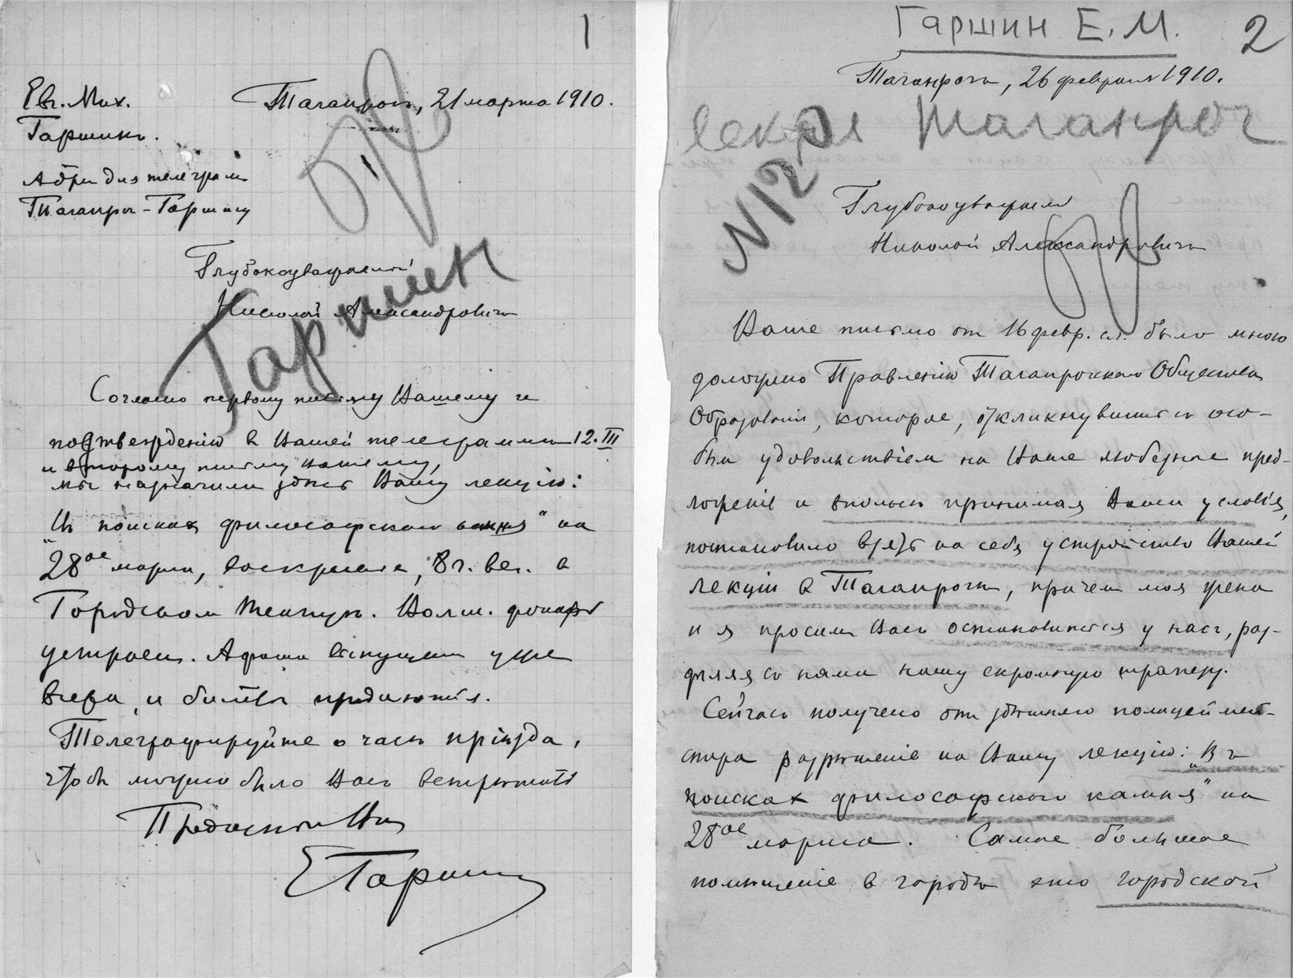 1
Евг. Мих.
Гаршинъ.
Таганрог, 21 марта 1910.
Адрес для телеграм
Таганрог-Гаршину
Глубокоуважаемый
Николай Александрович
Гаршин
Согласно первому письму Вашему и
подтверждению в Вашей телеграмме 12.III
и второму письму Вашему,
мы назначили здѣсь Вашу лекцію:
„В поисках философскаго камня" на
28ое марта, воскресенье, 8 ч. веч. в
Городском театрѣ. Волш. фонарь
устроен. Афиши выпущены уже
вчера, и билеты продаются.
Телеграфируйте о часѣ пріѣзда,
чтобы можно было Васъ встрѣтить
Преданный Вам
ЕГаршин
Гаршин Е. М.
2
Таганрогъ, 26 февраля 1910.
Таганрог
N12
Глубокоуважаемый
Николай Александровичъ
Ваше письмо от 16 февр. с.г. было мною
доложено Правленію Таганрогскаго Общества
Образованія, которое, откликнувшись с осо-
бым удовольствіем на Ваше любезное пред-
ложеніе и вполнѣ принимая Ваши условія,
постановило взять на себя устройство Вашей
лекціи в Таганрогѣ, причем моя жена
и я просим Васъ остановиться у насъ, раз-
дѣляя со нами нашу скромную трапезу.
Сейчасъ получено от здѣшняго полицеймей-
стера разрѣшеніе на Вашу лекцію: „Въ
поисках философскаго камня" на
28ое марта. Самое большое
помѣщеніе в городѣ это городской